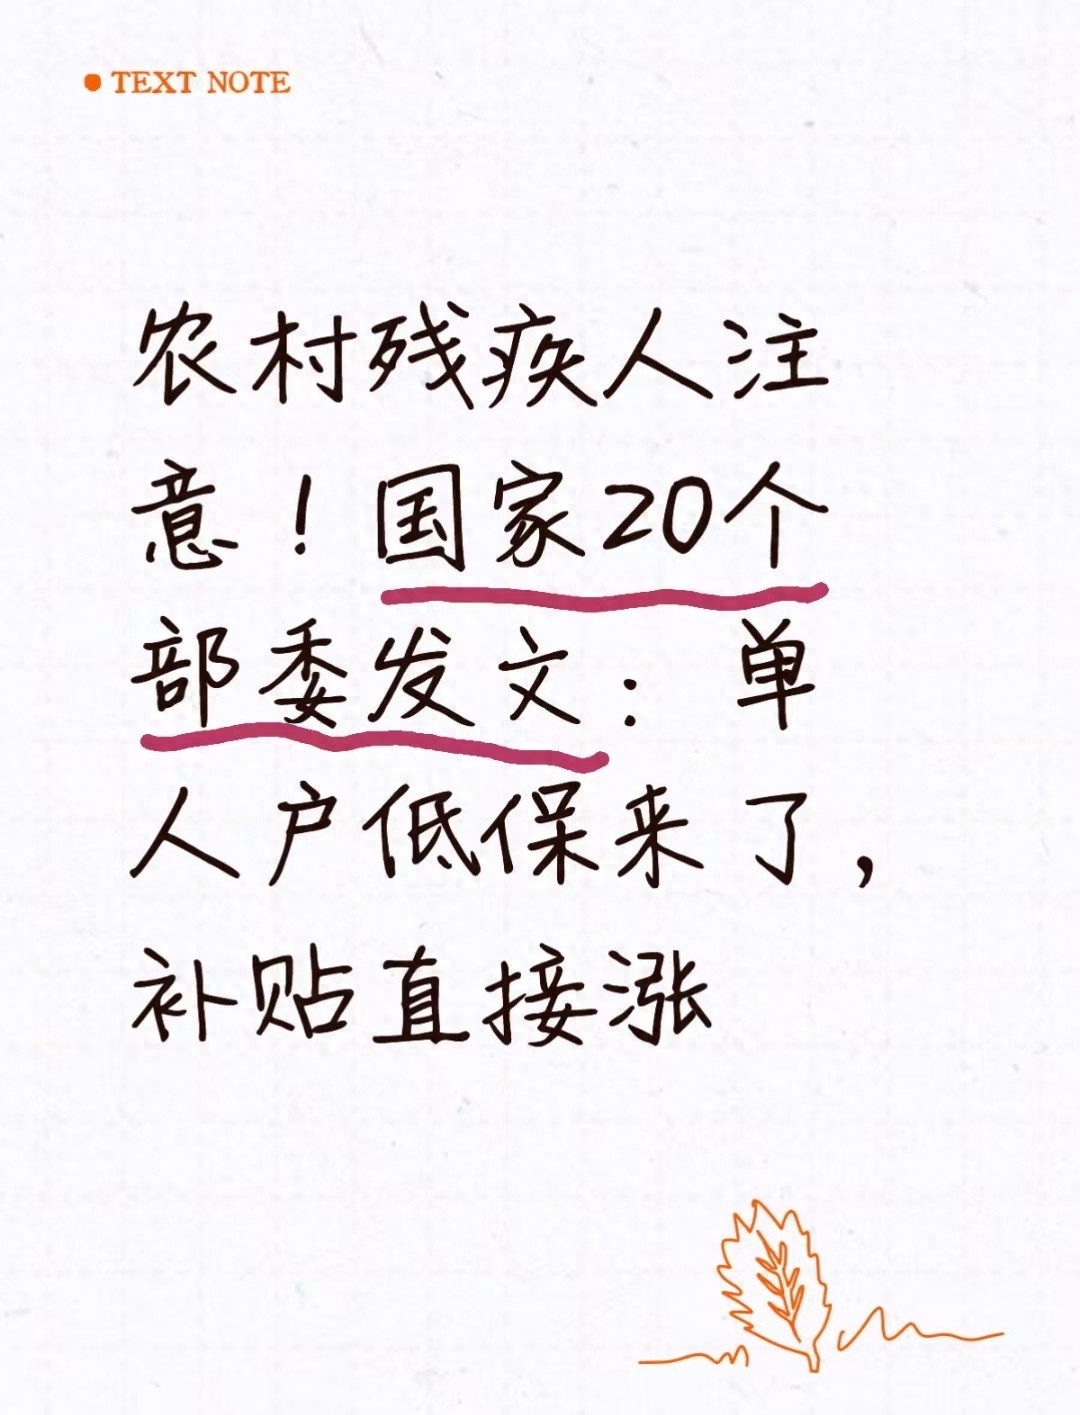 TEXT NOTE
农村残疾人注
意！国家20个
部委发文：单
人户低保来了，
补贴直接涨